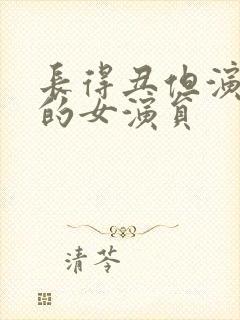 長得丑但演
的女演員
清苓